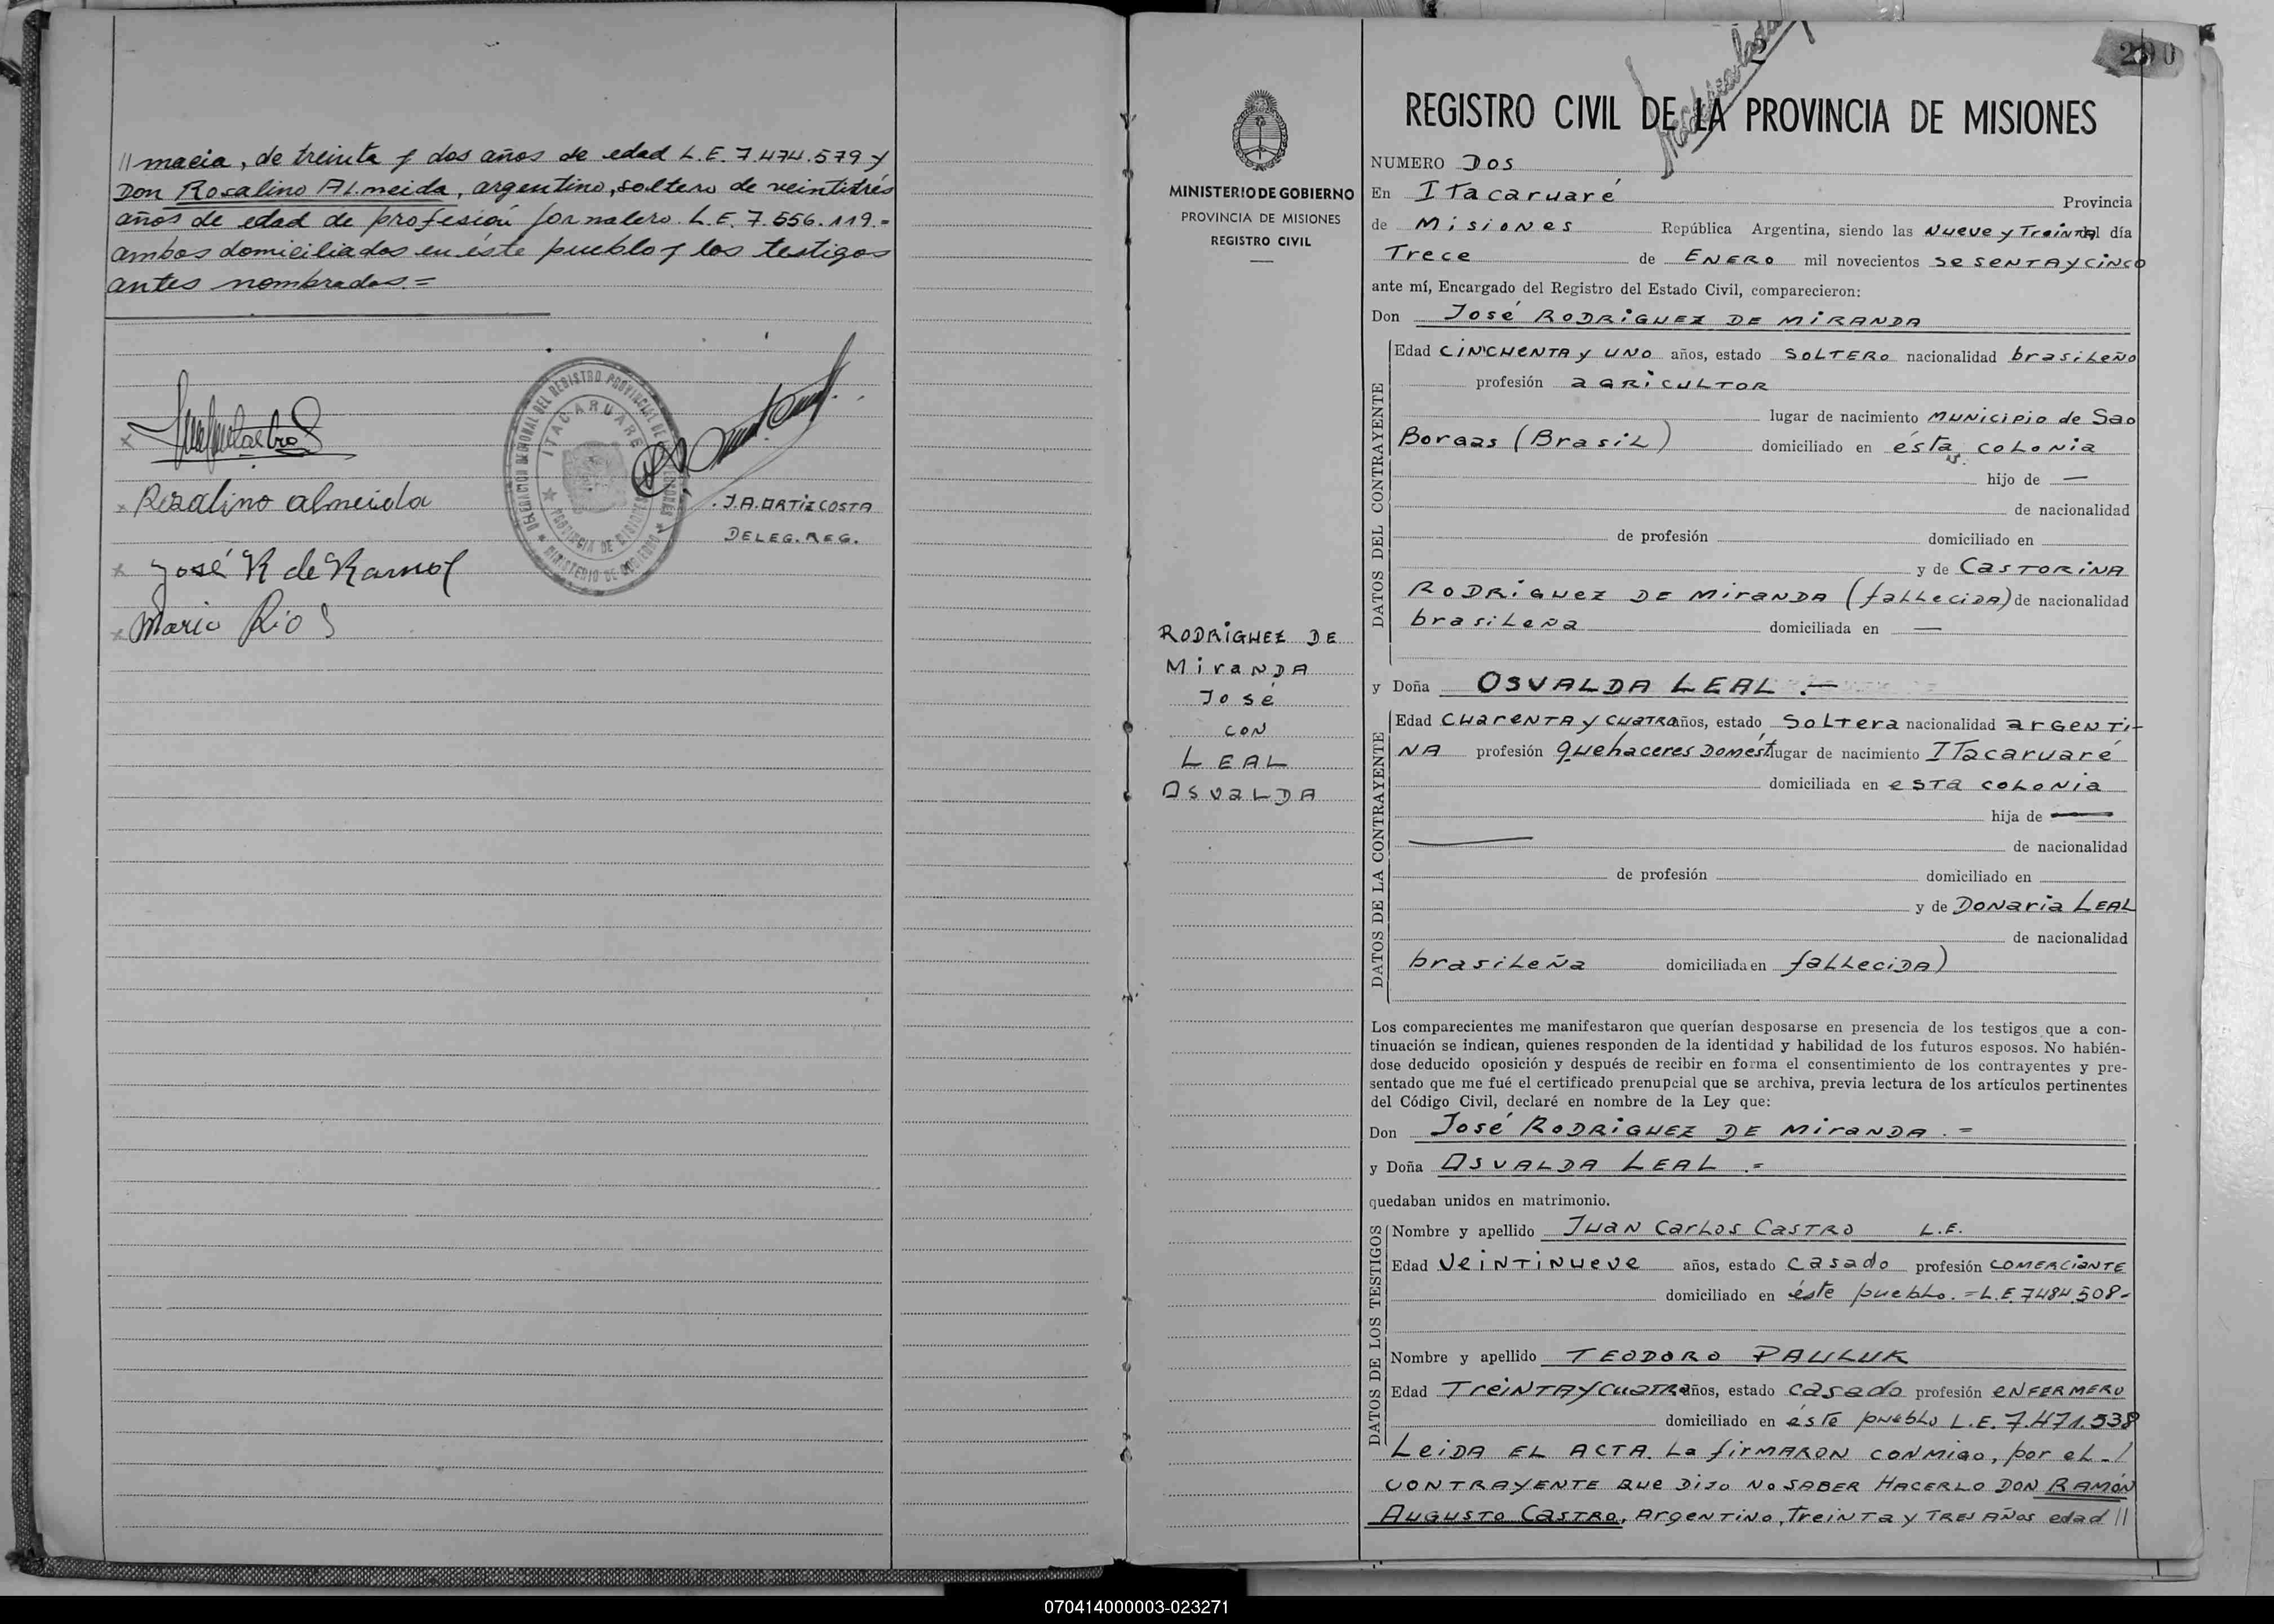 // macia, de treinta y dos años de edad L.E. 7.474.579 y
Don Rosalino ALmeida, argentino, soltero de veintitrés
años de edad de profesión jornalero. L.E. 7.556.119.=
ambos domiciliados en éste pueblo y los testigos
antes nombrados.=
Rosalino almeida
José R de Ramos
Mario Rios
DELEGACION REGIONAL DEL REGISTRO PROVINCIAL DE LAS PERSONAS
ITACARUARE
PROVINCIA DE MISIONES
MINISTERIO DE GOBIERNO
J.A. ORTIZ COSTA
DELEG. REG.
MINISTERIO DE GOBIERNO
PROVINCIA DE MISIONES
REGISTRO CIVIL
RODRIGUEZ DE
MIRANDA
José
CON
LEAL
OSVALDA
290
REGISTRO CIVIL DE LA PROVINCIA DE MISIONES
NUMERO DOS
En ITacaruaré Provincia
de Misiones República Argentina, siendo las Nueve y Treinta del día
Trece de ENERO mil novecientos sesenta y cinco
ante mí, Encargado del Registro del Estado Civil, comparecieron:
Don José RODRIGUEZ DE MIRANDA
DATOS DEL CONTRAYENTE
Edad CINCUENTA y UNO años, estado SOLTERO nacionalidad brasileño
profesión agricultor
lugar de nacimiento Municipio de Sao
Borgas (Brasil) domiciliado en ésta colonia
hijo de —
de nacionalidad
de profesión domiciliado en
y de CASTORINA
RODRIGUEZ DE MIRANDA (fallecida) de nacionalidad
brasileña domiciliada en —
y Doña OSVALDA LEAL .—
DATOS DE LA CONTRAYENTE
Edad Cuarenta y cuatro años, estado Soltera nacionalidad argenti-
NA profesión quehaceres Domést. lugar de nacimiento ITacaruaré
domiciliada en esta colonia
hija de —
de nacionalidad
de profesión domiciliado en
y de Donaria LEAL
de nacionalidad
brasileña domiciliada en fallecida)
Los comparecientes me manifestaron que querían desposarse en presencia de los testigos que a con-
tinuación se indican, quienes responden de la identidad y habilidad de los futuros esposos. No habién-
dose deducido oposición y después de recibir en forma el consentimiento de los contrayentes y pre-
sentado que me fué el certificado prenupcial que se archiva, previa lectura de los artículos pertinentes
del Código Civil, declaré en nombre de la Ley que:
Don José RODRIGUEZ DE MIRANDA .=
y Doña OSVALDA LEAL .=
quedaban unidos en matrimonio.
DATOS DE LOS TESTIGOS
Nombre y apellido Juan Carlos Castro L.E.
Edad Veintinueve años, estado casado profesión COMERCIANTE
domiciliado en éste pueblo.= L.E. 7484.508-
Nombre y apellido TEODORO PAULUK
Edad Treinta y cuatro años, estado casado profesión ENFERMERO
domiciliado en éste pueblo L.E. 7.471.538
Leida EL ACTA. La firmaron conmigo, por el -/
CONTRAYENTE que Dijo No SABER HACERLO DON RAMÓN
AUGUSTO CASTRO, Argentino, Treinta y TRES AÑOS edad //
070414000003-023271